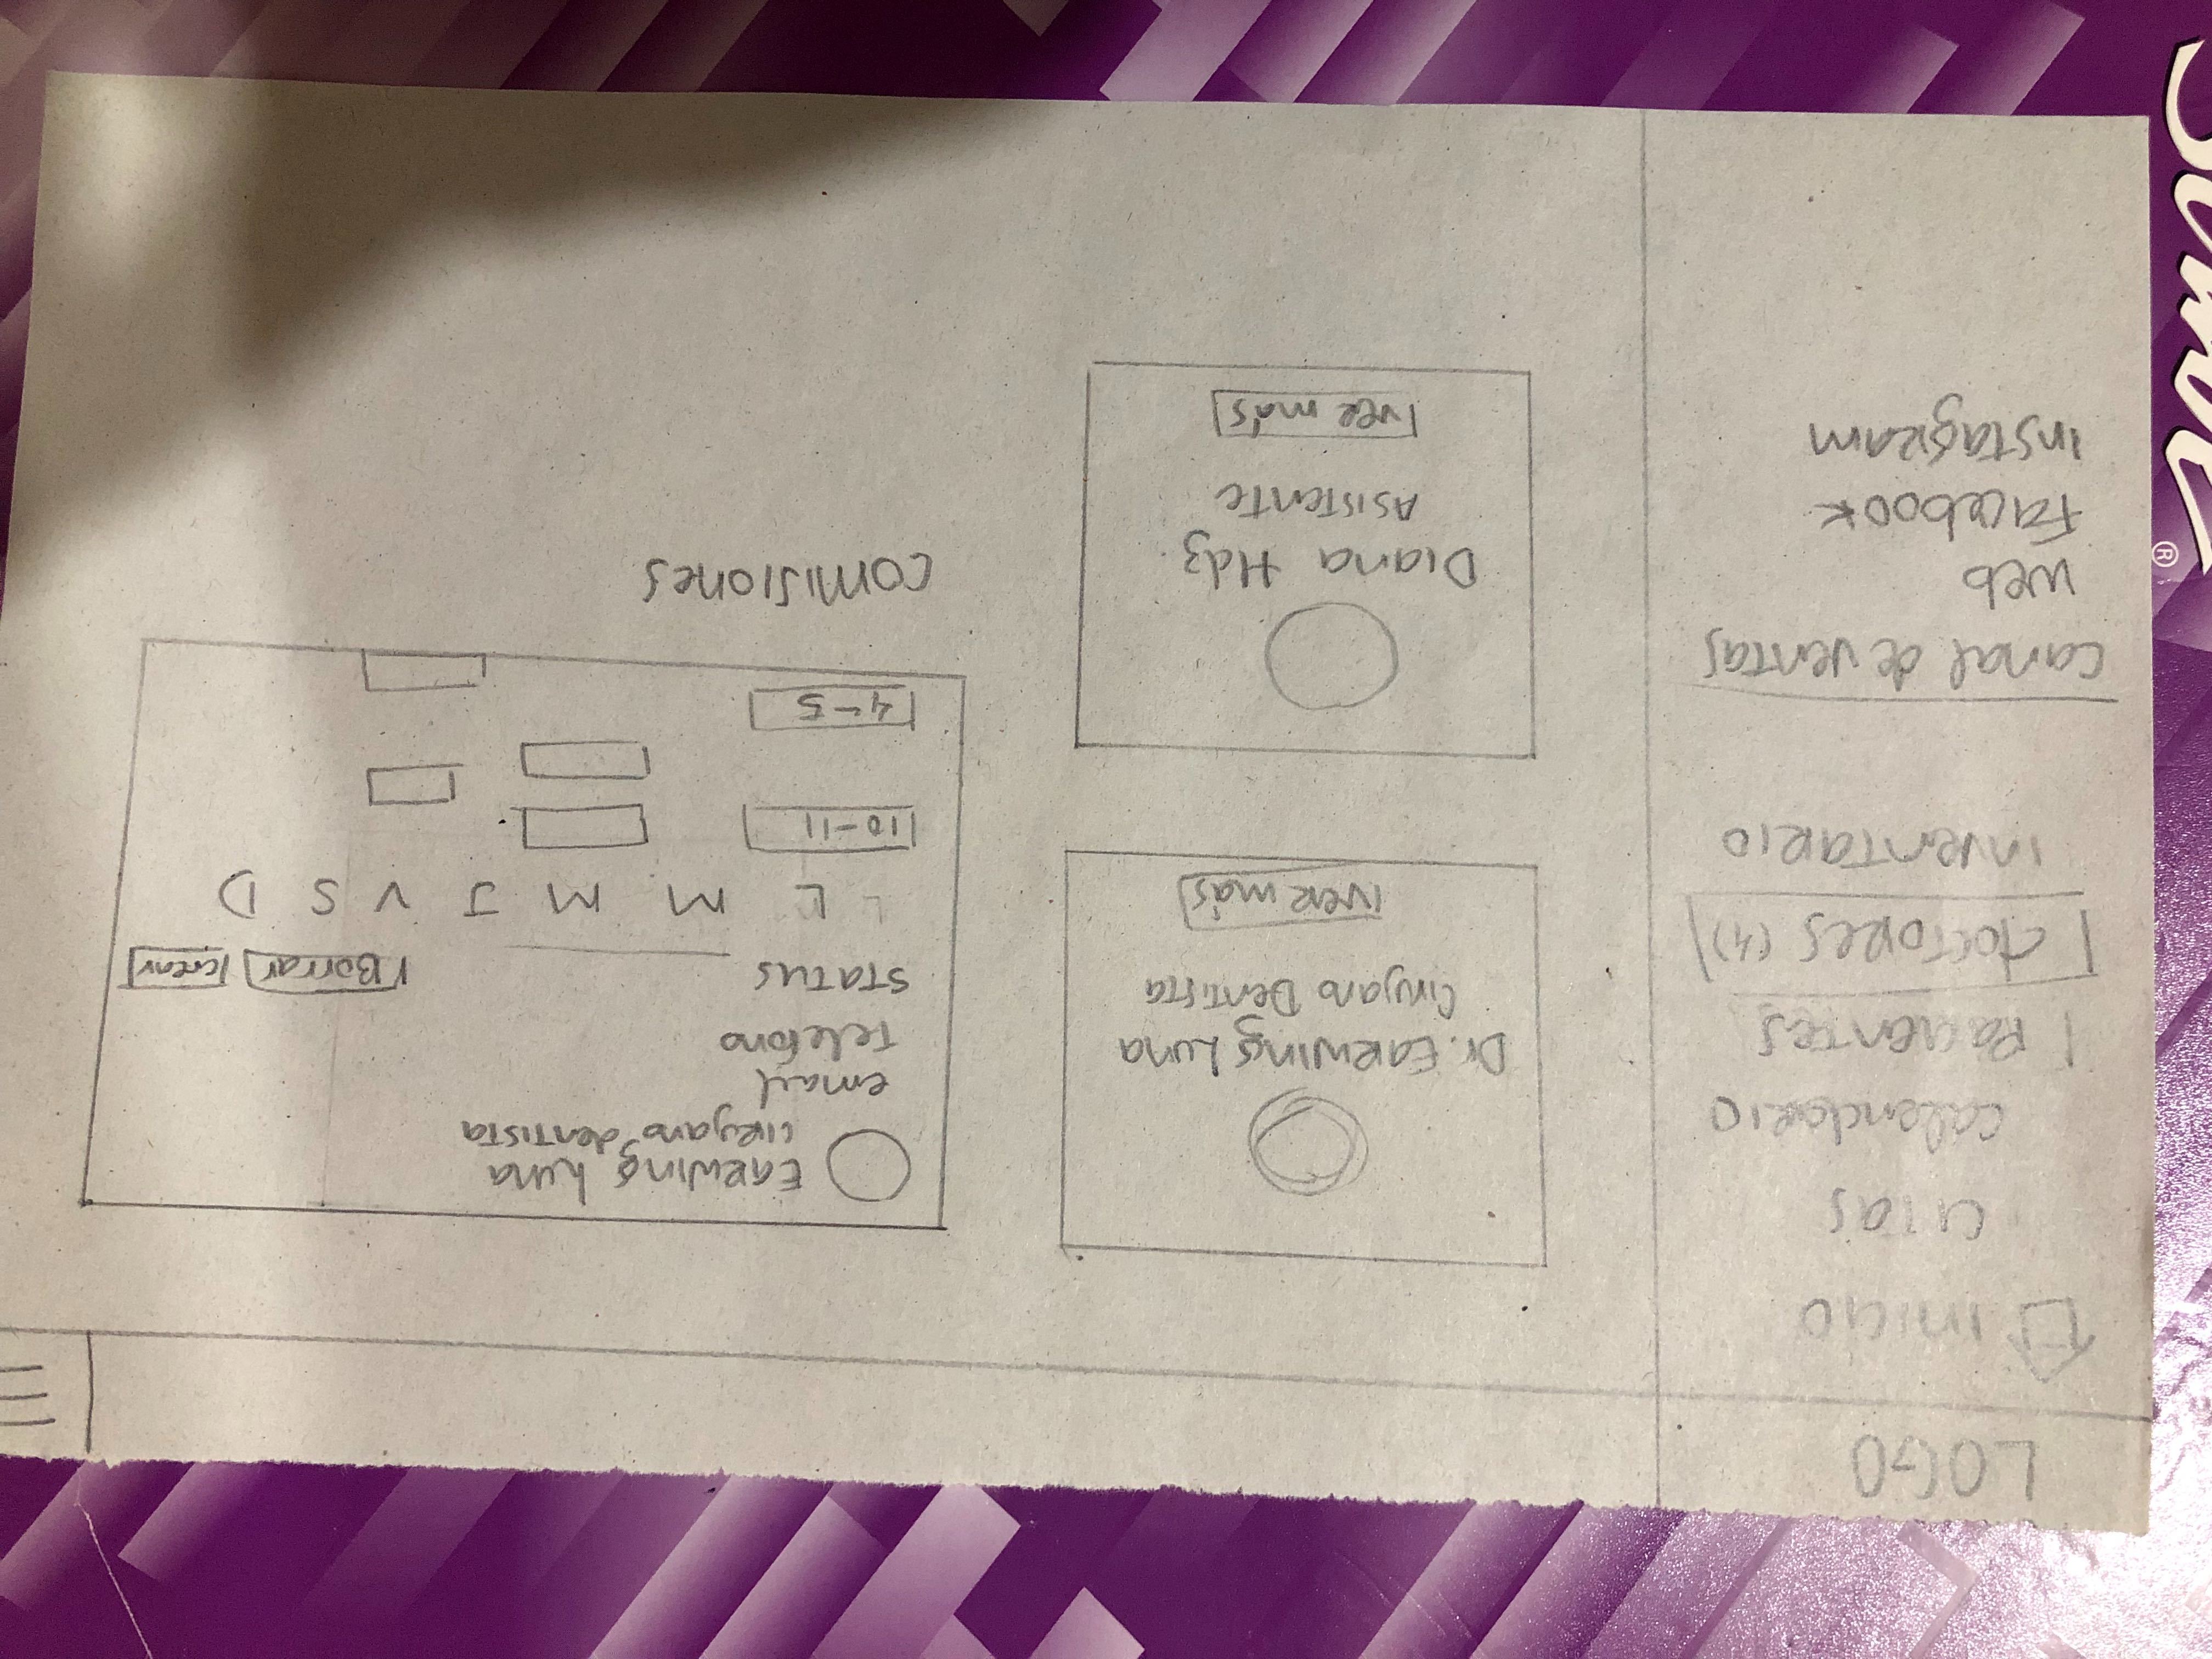 LOGO
inicio
citas
calendario
Pacientes
doctores (4)
inventario
canal de ventas
web
Facebook
Instagram
Dr. Earwing Luna
Cirujano Dentista
ver más
Diana Hdz.
Asistente
ver más
Earwing Luna
cirujano dentista
email
Telefono
STATUS
Borrar crear
L M M J V S D
10-11
4-5
comisiones
®